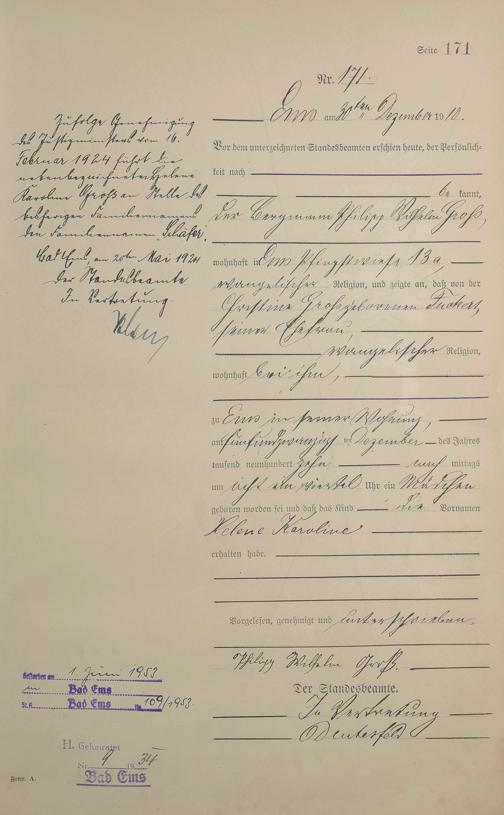 Seite 171
Nr. 171.
Ems am 30ten Dezember 1910.
Vor dem unterzeichneten Standesbeamten erschien heute, der Persönlich-
keit nach
be kannt,
der Bergmann Philipp Wilhelm Groß,
wohnhaft in Ems Pfingstwiese 13a,
evangelischer Religion, und zeigte an, daß von der
Christine Groß geborenen
seiner Ehefrau,
evangelischer Religion,
wohnhaft bei ihm,
zu Ems in seiner Wohnung,
am fünfundzwanzigsten Dezember des Jahres
tausend neunhundert zehn nach mittags
um acht ein viertel Uhr ein Mädchen
geboren worden sei und daß das Kind die Vornamen
Helene Karoline
erhalten habe.
Vorgelesen, genehmigt und unterschrieben.
Philipp Wilhelm Groß.
Der Standesbeamte.
In Vertretung
Zufolge Genehmigung
des Justizministers vom 16.
Februar 1924 führt die
nebenbezeichnete Helene
Karoline Groß an Stelle des
bisherigen Familiennamens
den Familiennamen Schäfer.
Bad Ems, am 20ten Mai 1924
Der Standesbeamte
In Vertretung.
Gestorben am 1. Juni 1953
in Bad Ems
St. A. Bad Ems Nr. 109/1953
H. Geheiratet
Nr. 9 1934
Bad Ems
Form. A.